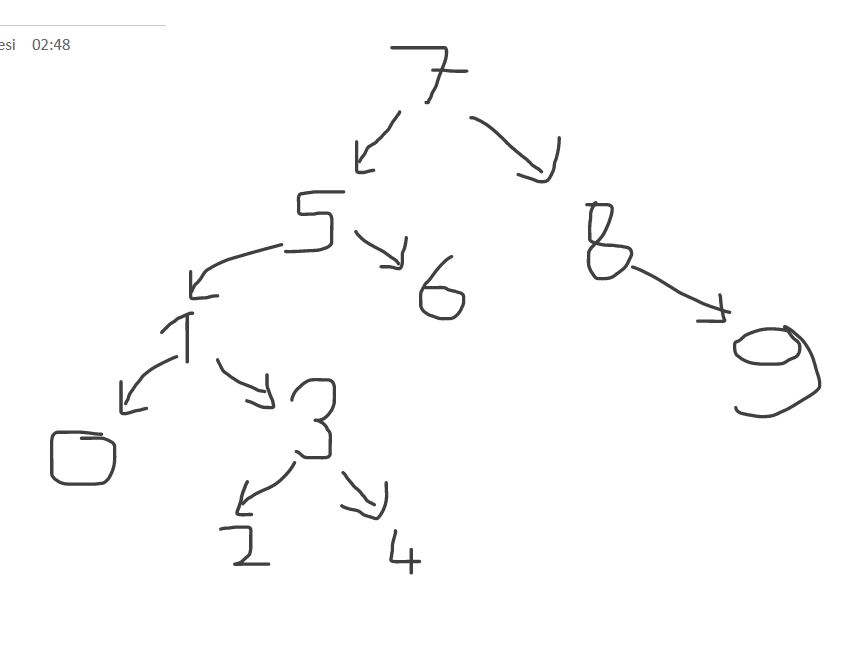 esi 02:48
7
5 8
6
1 9
0 3
2 4